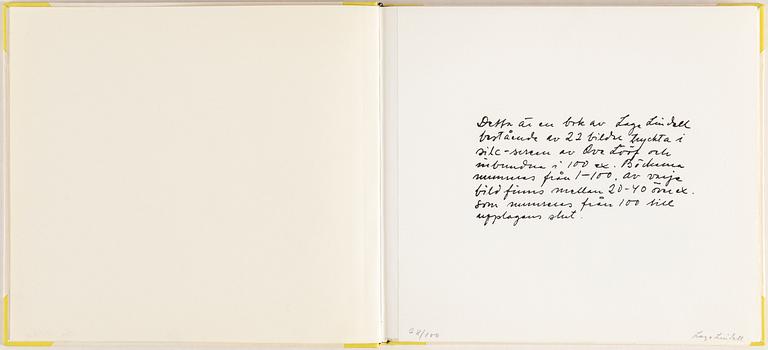 Detta är en bok av Lage Lindell
bestående av 22 bilder tryckta i
silc-screen av Ove Lööf och
inbundna i 100 ex. Böckerna
numreras från 1-100. av varje
bild finns mellan 20-40 övr. ex.
som numreras från 100 till
upplagans slut.
68/100
Lage Lindell